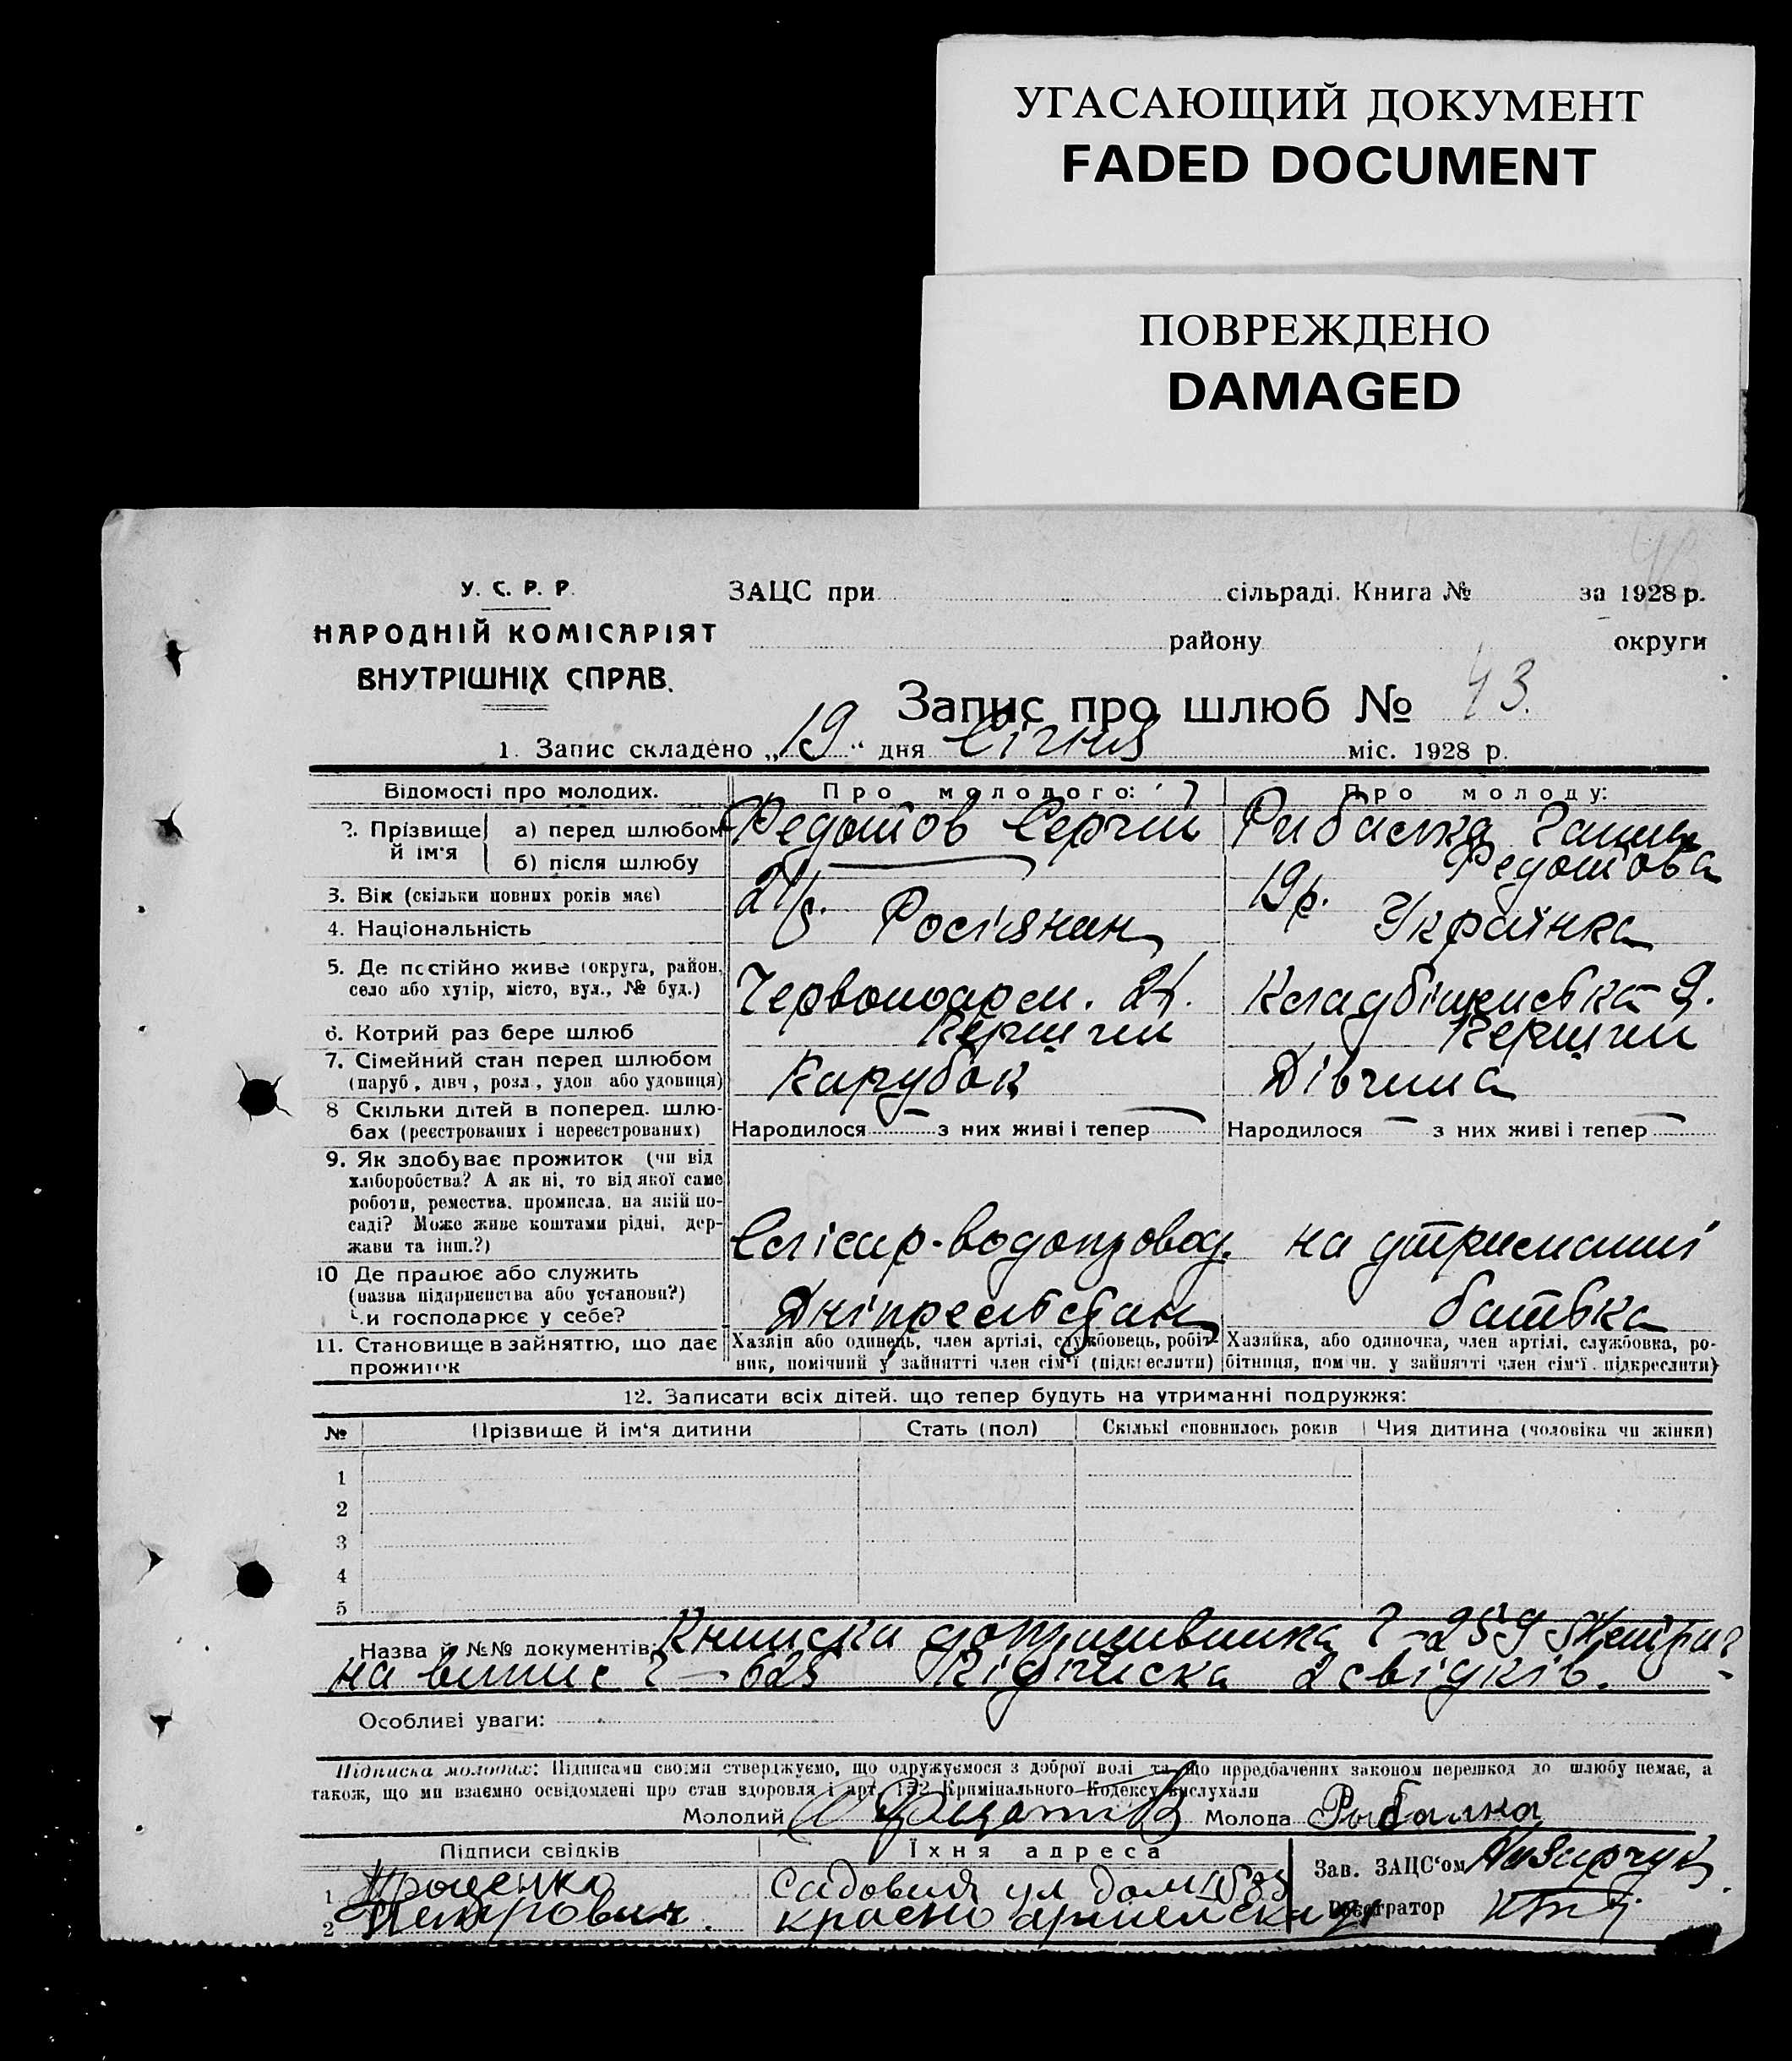 УГАСАЮЩИЙ ДОКУМЕНТ
FADED DOCUMENT
ПОВРЕЖДЕНО
DAMAGED
У. С. Р. Р.
НАРОДНІЙ КОМІСАРІЯТ
ВНУТРІШНІХ СПРАВ.
ЗАЦС при сільраді. Книга № за 1928 р.
району округи
Запис про шлюб № 43.
1. Запис складено „19“ дня Січня міс. 1928 р.
Відомості про молодих. Про молодого: Про молоду:
2. Прізвище й ім'я а) перед шлюбом Федотов Сергій Рибалка
б) після шлюбу Федотова
3. Вік (скільки повних років має) 19 р.
4. Національність Росіянин Українка
5. Де постійно живе (округа, район, село або хутір, місто, вул., № буд.) Червоноарм. 21. Кладбіщенська 9.
6. Котрий раз бере шлюб Перший Перший
7. Сімейний стан перед шлюбом (паруб., дівч., розл., удов. або удовиця) Парубок Дівчина
8 Скільки дітей в поперед. шлюбах (реєстрованих і нереєстрованих) Народилося — з них живі і тепер — Народилося — з них живі і тепер —
9. Як здобуває прожиток (чи від хліборобства? А як ні, то від якої саме роботи, ремества, промисла, на якій посаді? Може живе коштами рідні, держави та інш.?) Слісар-водопровод. на утриманні
10 Де працює або служить (назва підприємства або установи?) Чи господарює у себе? батька
11. Становище в зайняттю, що дає прожиток Хазяін або одинець, член артілі, службовець, робітник, помічний у зайнятті член сім'ї (підкреслити) Хазяйка, або одиночка, член артілі, службовка, робітниця, помічн. у зайнятті член сім'ї. підкреслити)
12. Записати всіх дітей, що тепер будуть на утриманні подружжя:
№ Прізвище й ім'я дитини Стать (пол) Скількі сповнилось років Чия дитина (чоловіка чи жінки)
1
2
3
4
5
Назва й №№ документів: Книжка допризивника 259
на витис 625 Підписка 2 свідків.
Особливі уваги:
Підписка молодих: Підписами своіми стверджуємо, що одружуємося з доброї волі та що предбачених законом перешкод до шлюбу немає, а
також, що ми взаємно освідомлені про стан здоровля і арт. 152 Кримінального Кодексу вислухали
Молодий Молода Рыбалка
Підписи свідків Їхня адреса Зав. ЗАЦС'ом Назарчук
1 Проценко Садовая ул дом
2 Петрович. красно армейская Реєстратор